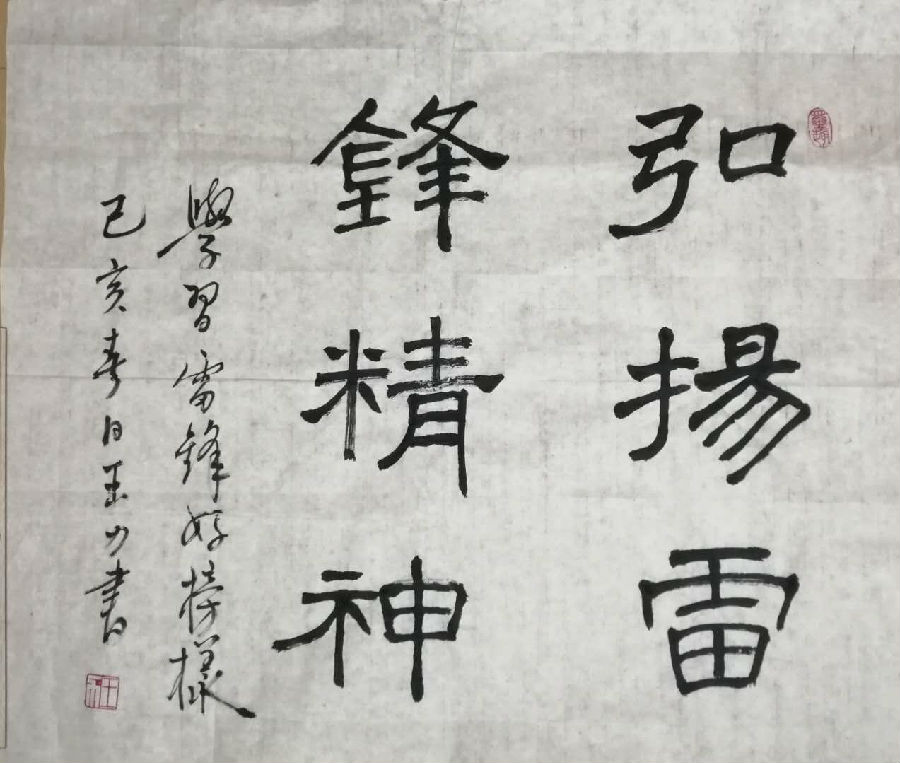 弘揚雷
鋒精神
學習雷鋒好榜樣
己亥春日玉力書